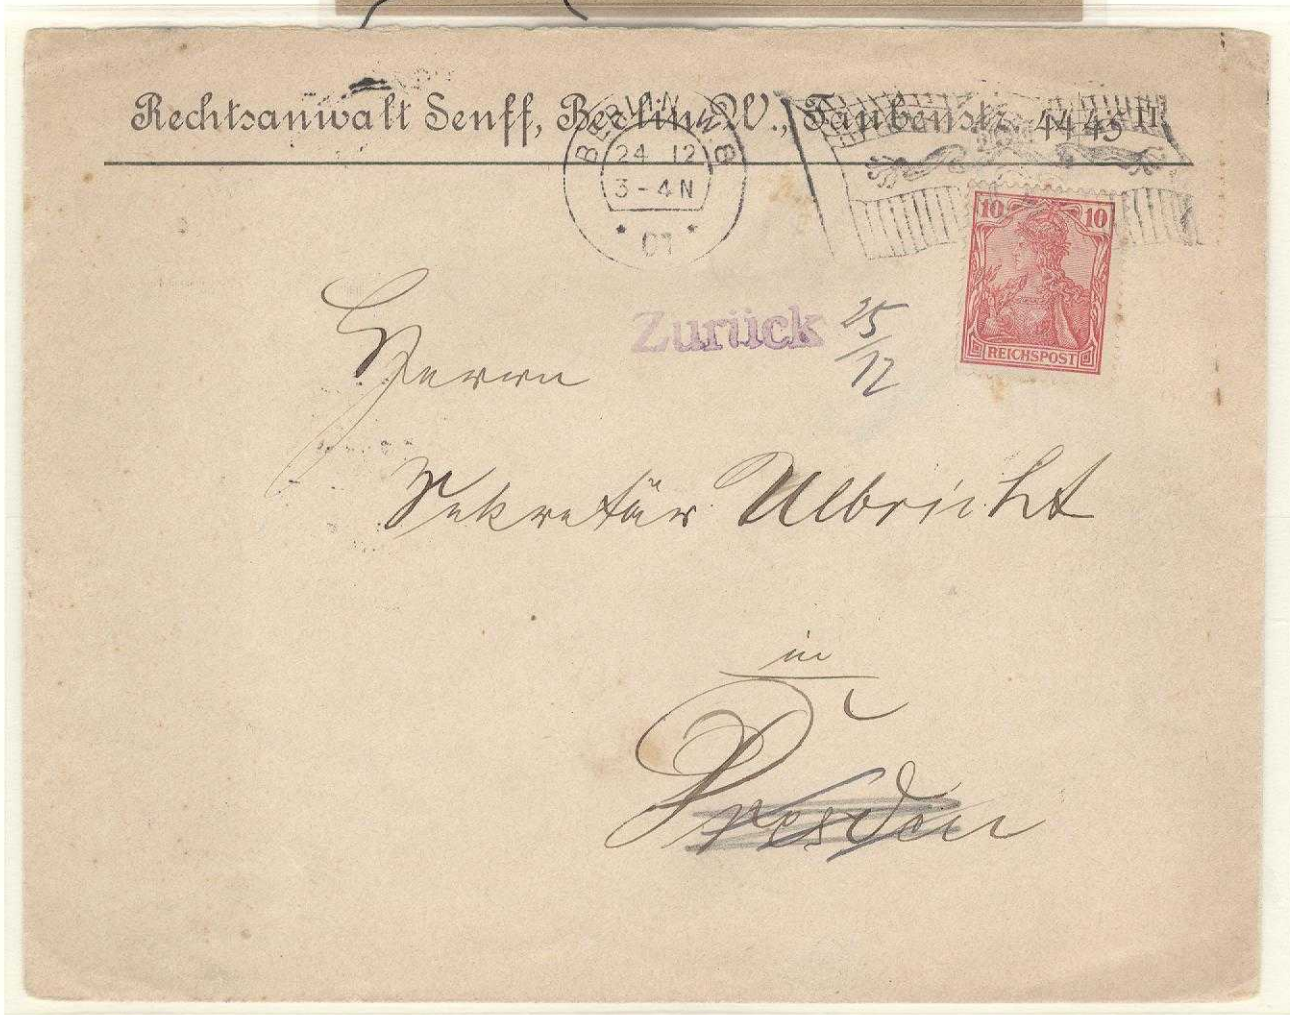 Rechtsanwalt Senff, Berlin W., Taubenstr. 44 45 II
BERLIN W 8
24 12
3 - 4 N
* 01 *
10 10
REICHSPOST
Zurück 25/12
Herrn
Sekretär Ulbricht
in
Dresden